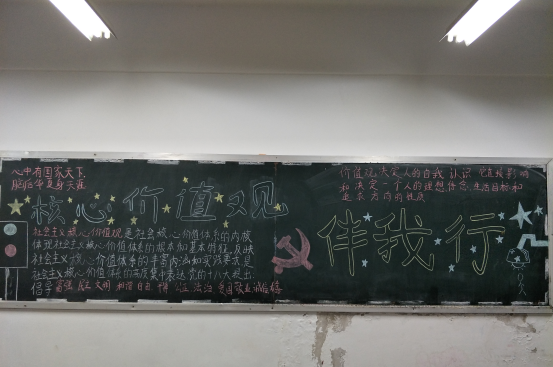 心中有国家天下,
核心价值观
社会主义核心价值观是社会核心价值体系的内核
体现社会主义核心价值体系的根本和基本特征,反映
社会主义核心价值体系的丰富内涵和实践要求,是
社会主义核心价值体系的高度集中表达。党的十八大提出
倡导富强 民主 文明 和谐 自由 公正 法治 爱国敬业诚信
价值观决定人的自我认识 它直接影响
和决定一个人的理想信念 生活目标和
追求方向的性质
伴我行